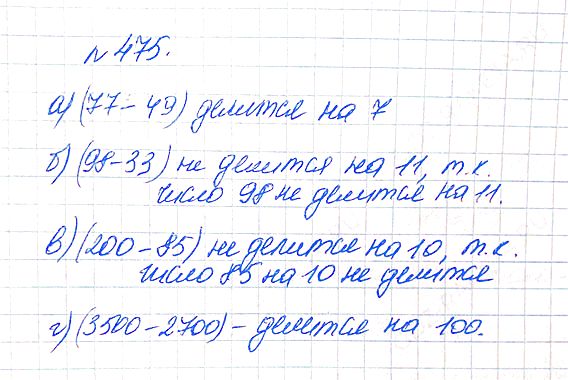 № 475.
а) (77 - 49) делится на 7
б) (98-33) не делится на 11, т.к.
число 98 не делится на 11.
в) (200 - 85) не делится на 10, т.к.
число 85 на 10 не делится
г) (3500 - 2700) - делится на 100.